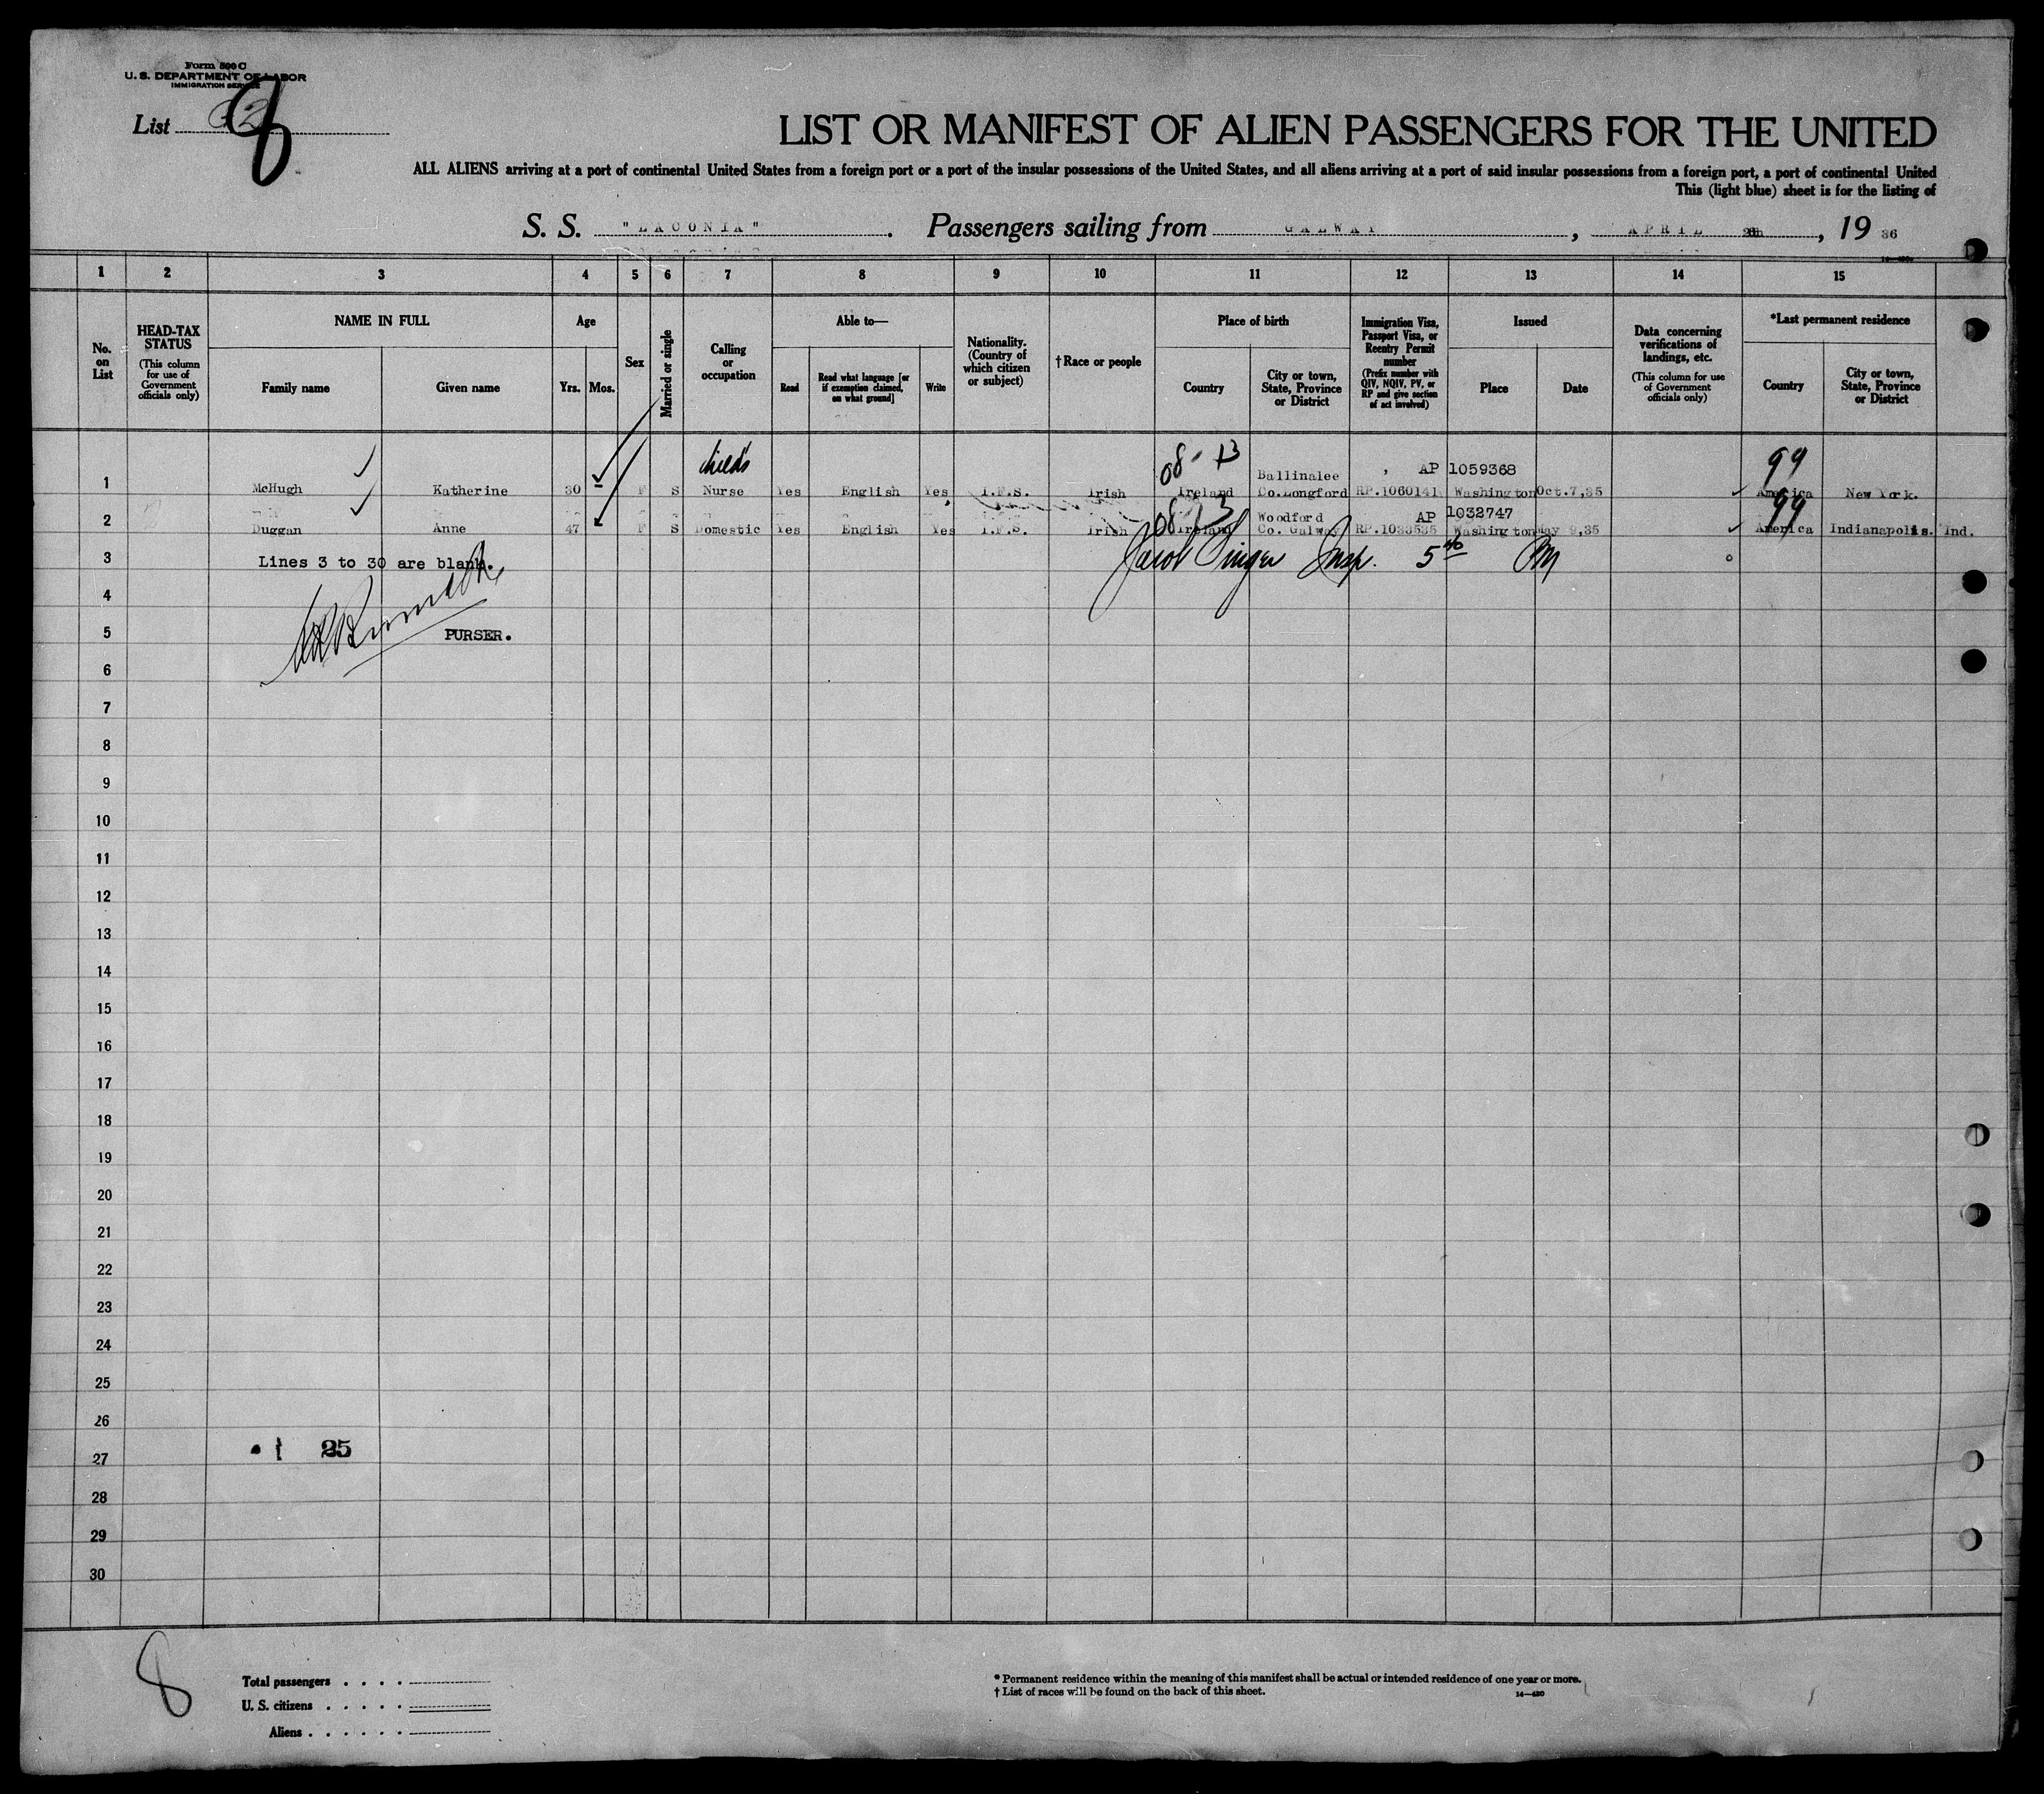 Form 500 C
U. S. DEPARTMENT OF LABOR
IMMIGRATION SERVICE
List 8
LIST OR MANIFEST OF ALIEN PASSENGERS FOR THE UNITED
ALL ALIENS arriving at a port of continental United States from a foreign port or a port of the insular possessions of the United States, and all aliens arriving at a port of said insular possessions from a foreign port, a port of continental United
This (light blue) sheet is for the listing of
S. S. "LACONIA". Passengers sailing from GALWAY, APRIL, 19 36
1 2 3 4 5 6 7 8 9 10 11 12 13 14 15
No. on List
HEAD-TAX STATUS
(This column for use of Government officials only)
NAME IN FULL
Family name Given name
Age
Yrs. Mos.
Sex
Married or single
Calling or occupation
Able to—
Read Read what language [or if exemption claimed, on what ground] Write
Nationality. (Country of which citizen or subject)
† Race or people
Place of birth
Country City or town, State, Province or District
Immigration Visa, Passport Visa, or Reentry Permit number
(Prefix number with QIV, NQIV, PV, or RP and give section of act involved)
Issued
Place Date
Data concerning verifications of landings, etc.
(This column for use of Government officials only)
*Last permanent residence
Country City or town, State, Province or District
child's 08 - 13 Ballinalee AP 1059368 99
1 McHugh Katherine 30 F S Nurse Yes English Yes I.F.S. Irish Ireland Co.Longford RP.1060141 Washington Oct.7,35 America New York.
08 13 Woodford AP 1032747 99
2 Duggan Anne 47 F S Domestic Yes English Yes I.F.S. Irish Ireland Co. Galway RP.1033535 Washington May 9,35 America Indianapolis. Ind.
3 Lines 3 to 30 are blank. Jacob Singer Insp. 5 40 PM
4
5 PURSER.
6
7
8
9
10
11
12
13
14
15
16
17
18
19
20
21
22
23
24
25
26
25
27
28
29
30
8
Total passengers . . . .
U. S. citizens . . . . .
Aliens . . . . . .
* Permanent residence within the meaning of this manifest shall be actual or intended residence of one year or more.
† List of races will be found on the back of this sheet.
14—430